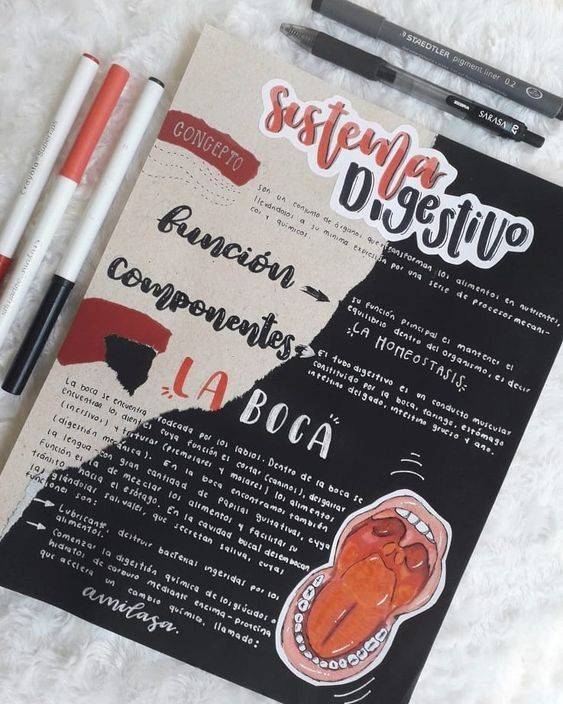 STAEDTLER pigment liner 0.2
SARASA
Sistema
Digestivo
CONCEPTO
son un conjunto de órganos que transforman los alimentos en nutrientes,
llevándolos a su mínima expresión por una serie de procesos mecáni-
cos y químicos.
función
su función principal es mantener el
equilibrio dentro del organismo, es decir
LA HOMEOSTASIS
componentes
El tubo digestivo es un conducto muscular
constituido por la boca, faringe, estómago
intestino delgado, intestino grueso y ano.
LA BOCA
La boca se encuentra rodeada por los labios. Dentro de la boca se
encuentra los dientes cuya función es cortar (canino), desgarrar
(incisivo) y triturar (premolares y molares) los alimentos
(digestión mecánica). En la boca encontramos también
la lengua con gran cantidad de papilas gustativas, cuya
función es la de mezclar los alimentos y facilitar su
tránsito hacia el esófago. En la cavidad bucal desembocan
las glándulas salivales, que secretan saliva, cuyas
funciones son:
Lubricante, destruir bacterias ingeridas por los
alimentos.
Comenzar la digestión química de los glúcidos o
hidratos de carbono mediante enzima-proteína
que acelera un cambio químico, llamado:
amilasa.